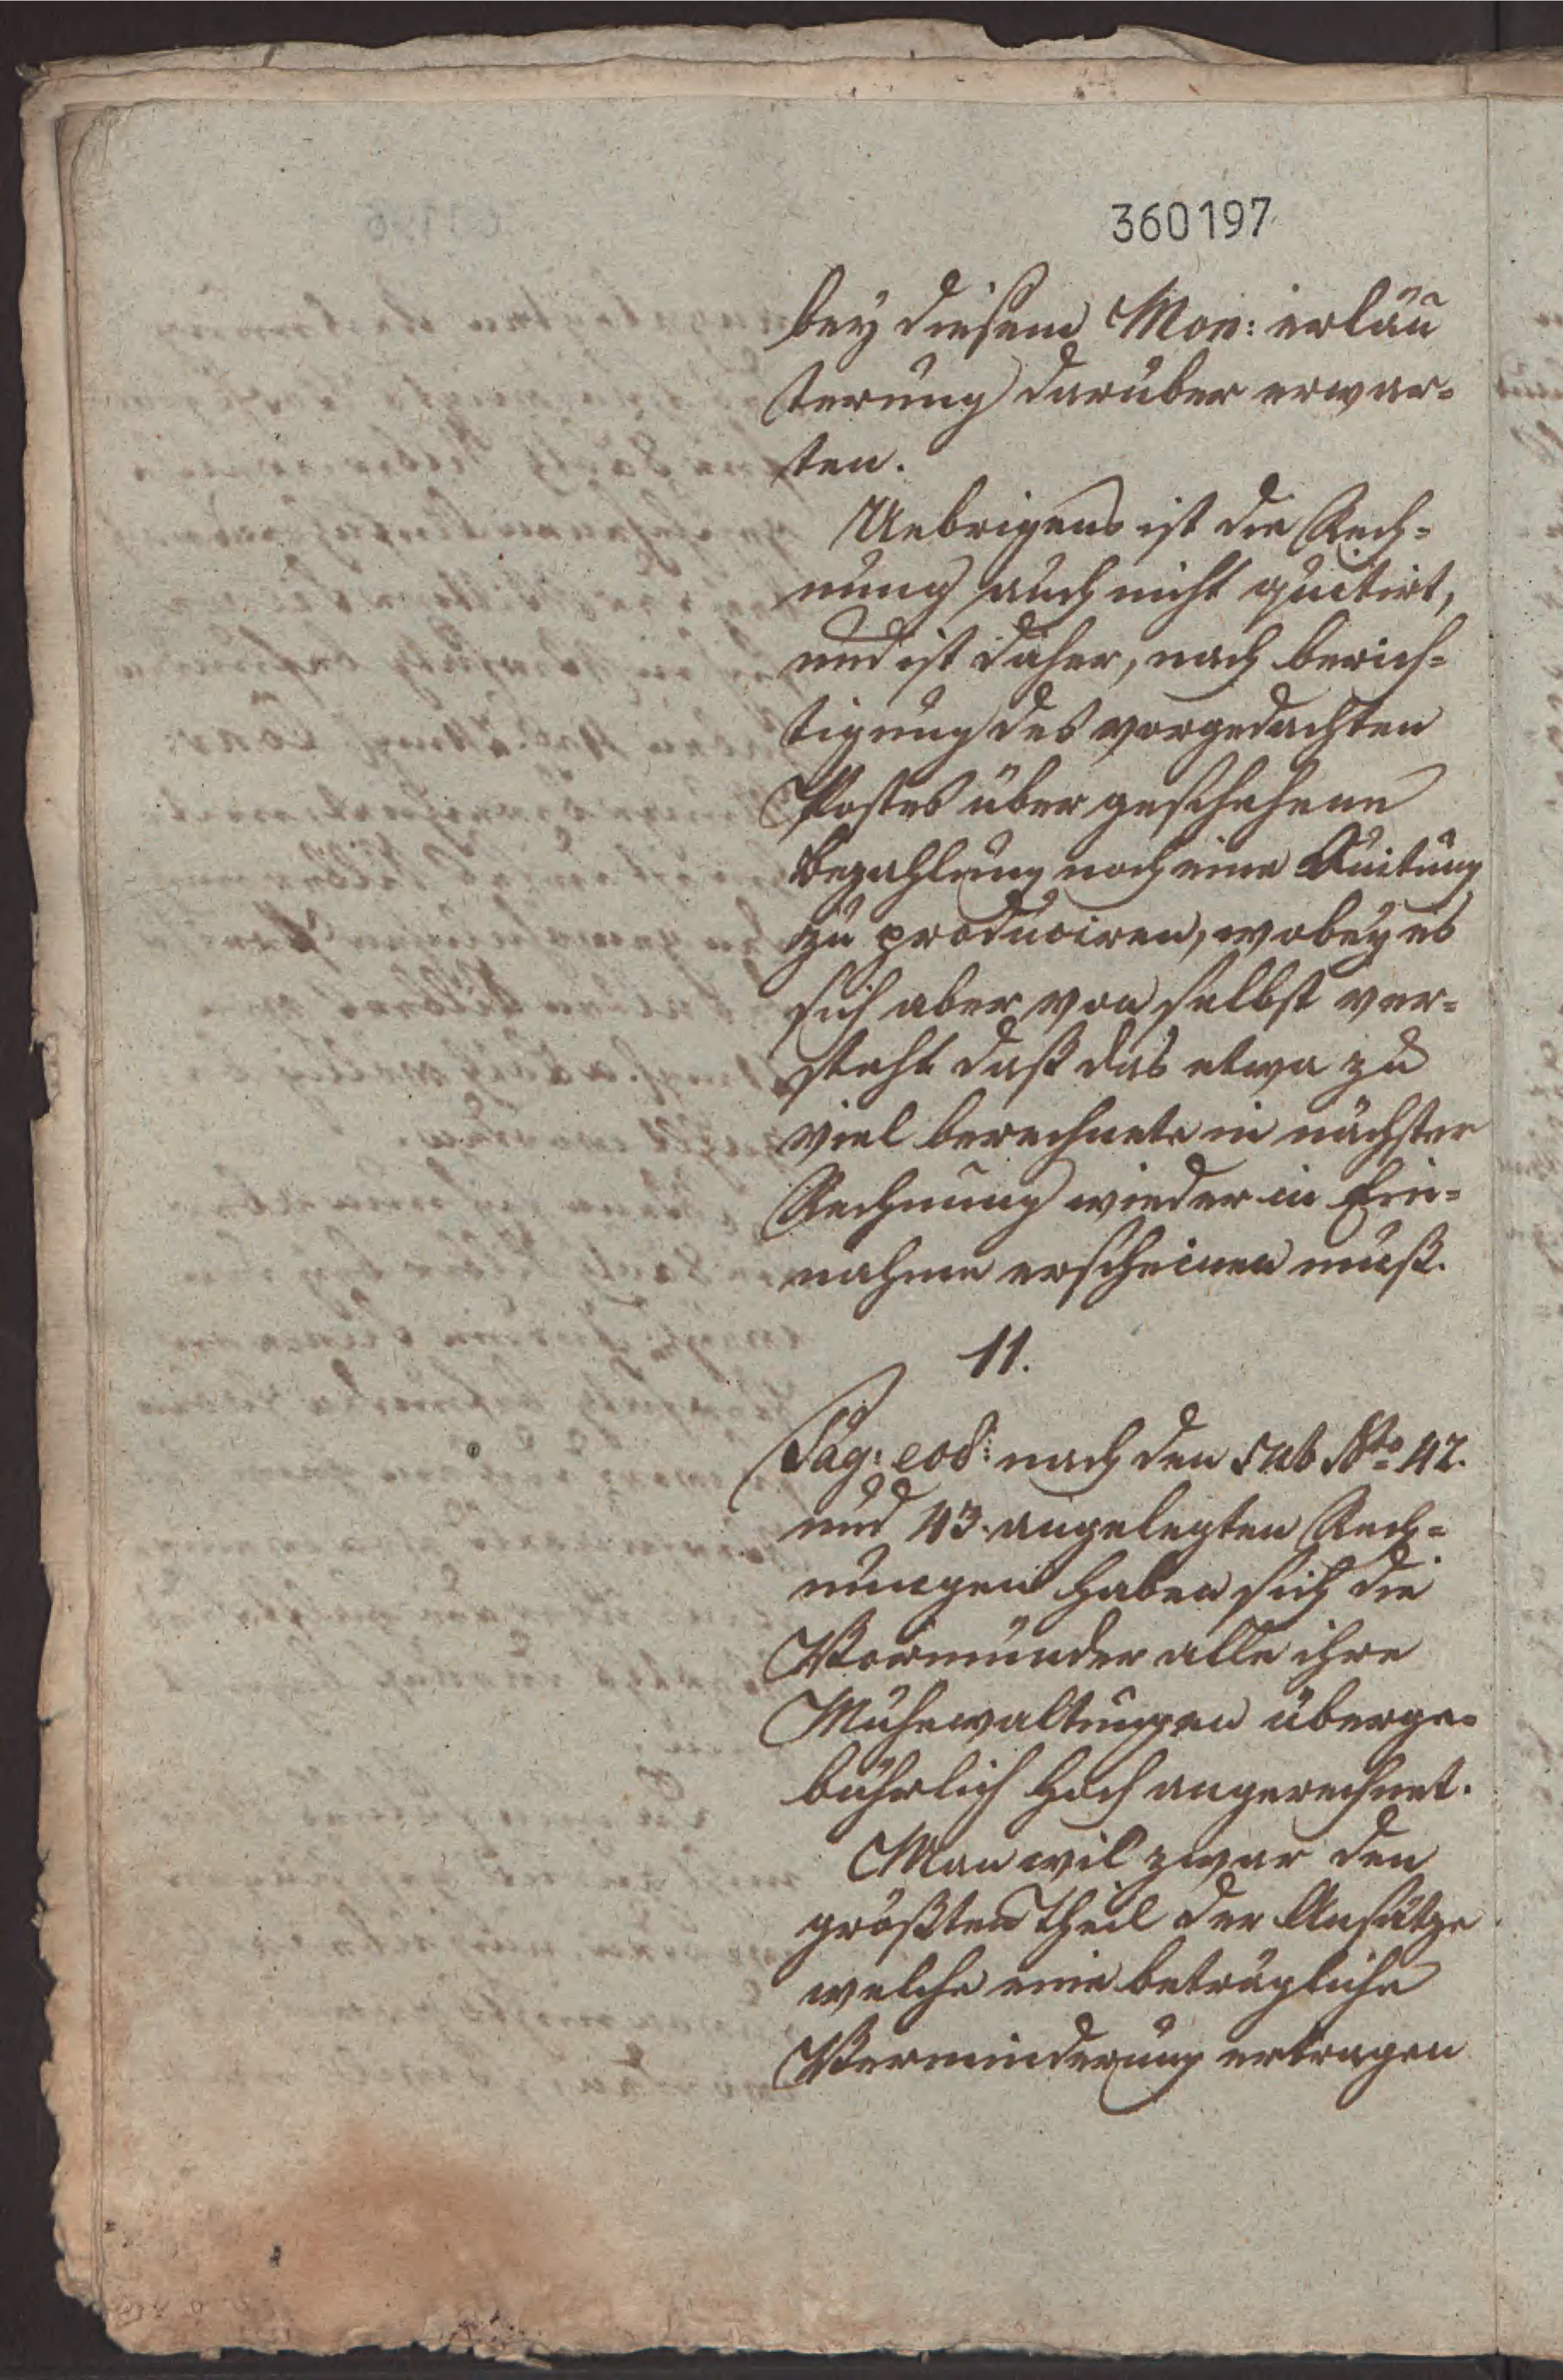 360197
bey diesem Mon: erläu
terung darüber erwar=
ten.
Uebrigens ist die Rech=
nung auch nicht quitirt,
und ist daher, nach berich=
tigung des vorgedachten
Postes über geschehene
Bezahlung noch eine Quitung
zu produciren, wobey es
sich aber von selbst ver=
steht daß das etwa zu
viel berechnete in nächster
Rechnung wieder in Ein=
nahme erscheinen muß.
11.
Pag: eod: nach den sub No 42.
und 43. angelegten Rech=
nungen haben sich die
Vormünder alle ihre
Mühewaltungen überge=
bührlich hoch angerechnet.
Man wil zwar den
größten Theil der Ansätze
welche eine beträgliche
Verminderung ertragen